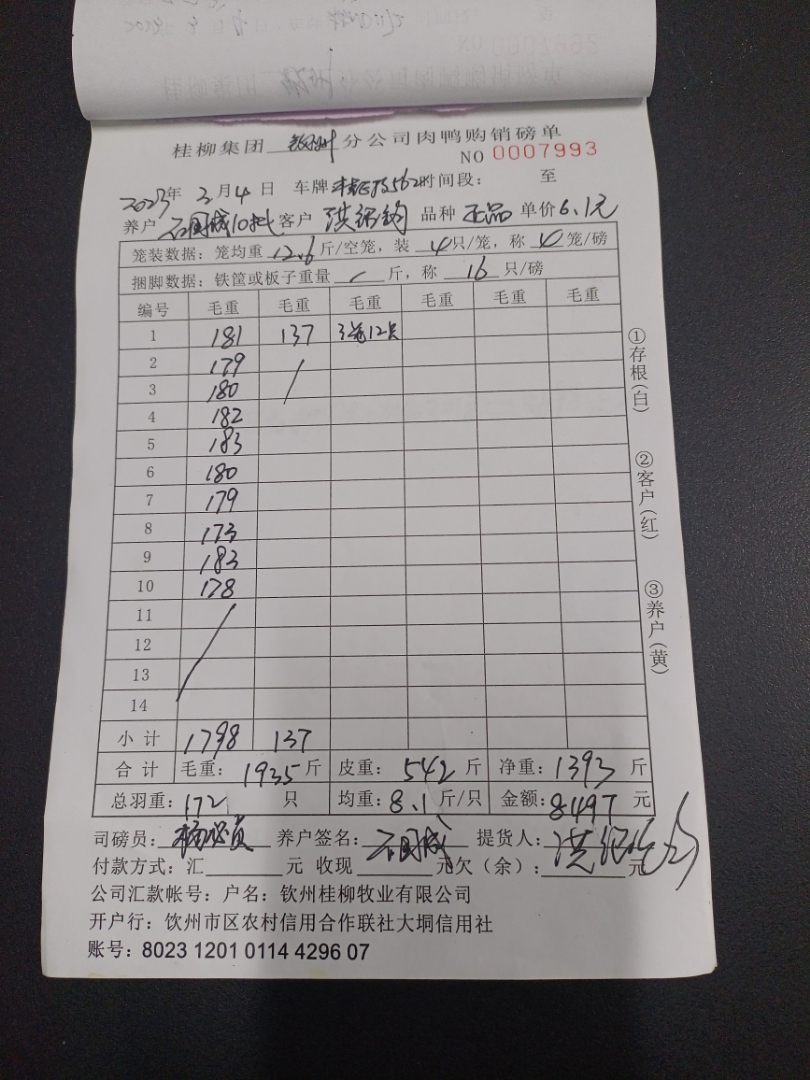 桂柳集团 钦州 分公司肉鸭购销磅单
NO 0007993
2023年 3月4日 车牌 562 时间段： 至
养户 石国成10批 客户 洪绍钧 品种 正品 单价6.1元
笼装数据：笼均重 12.6 斤/空笼，装 4只/笼，称 4笼/磅
捆脚数据：铁筐或板子重量 / 斤，称 16 只/磅
编号 毛重 毛重 毛重 毛重 毛重 毛重
1 181 137 3笼12只
2 179 /
3 180
4 182
5 183
6 180
7 179
8 173
9 183
10 178
11 /
12
13
14
小计 1798 137
合计 毛重：1935斤 皮重：542斤 净重：1393斤
总羽重：172 只 均重：8.1斤/只 金额：8497元
司磅员： 养户签名：石国成 提货人：洪
付款方式：汇 元 收现 元欠（余）： 元
公司汇款帐号：户名：钦州桂柳牧业有限公司
开户行：饮州市区农村信用合作联社大垌信用社
账号：8023 1201 0114 4296 07
①存根(白)
②客户(红)
③养户(黄)